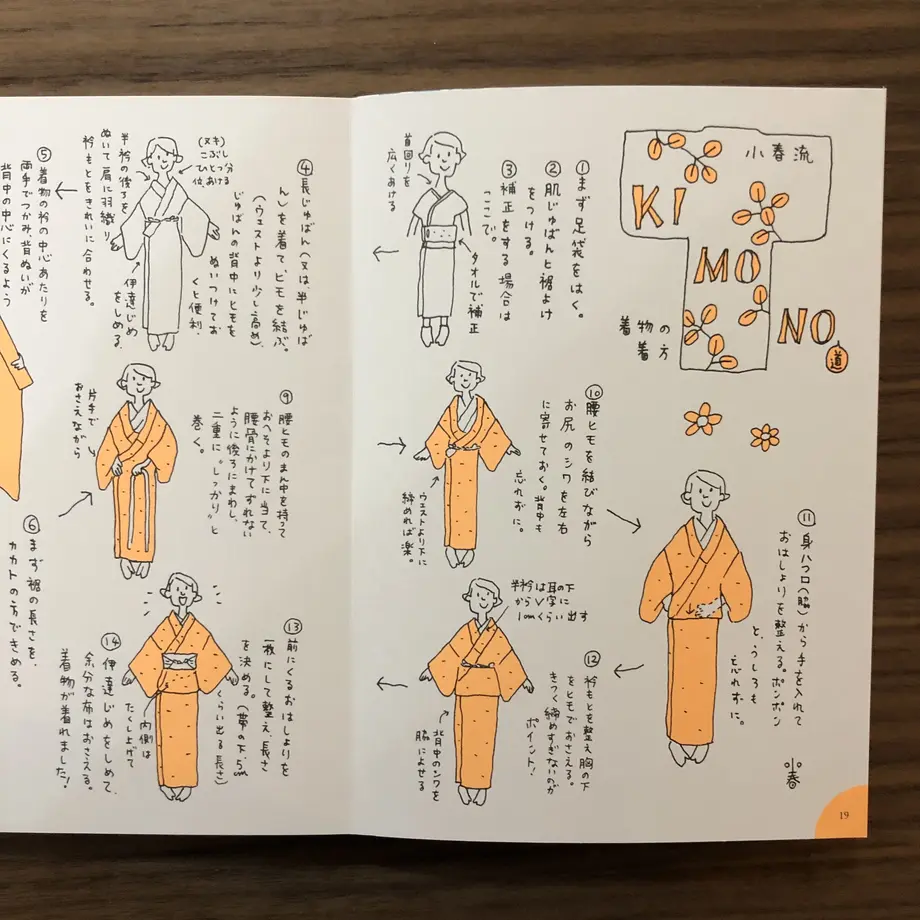 小春流
KI
MO
NO
道
着物の
着方
①まず足袋をはく。
②肌じゅばんと裾よけ
をつける。
③補正をする場合は
"ここで。
首回りを
広くあける
タオルで補正
④長じゅばん(又は、半じゅば
ん)を着て、ヒモを結ぶ。
(ウェストより少し高め)
じゅばんの背中にヒモを
ぬいつけてお
くと便利。
(ヌキ)
こぶし
ひとつ分
位あける
伊達じめ
をしめる。
半衿の後ろを
ぬいて肩に羽織り
衿もとをきれいに合わせる。
⑤着物の衿の中心あたりを
両手でつかみ、背ぬいが
背中の中心にくるよう
⑥まず裾の長さを、
カカトの方できめる。
⑨腰ヒモのまん中を持って
おへそより下に当て、
腰骨にかけてずれない
ように後ろにまわし、
二重に"しっかり"と
巻く。
片手で
おさえながら
⑩腰ヒモを結びながら
お尻のシワを左右
に寄せておく。背中も
忘れずに。
ウェストより下に
締めれば楽。
⑪身八ツ口(脇)から手を入れて
おはしょりを整える。ポンポン
と、うしろも
忘れずに。
⑫衿もとを整え胸の下
をヒモでおさえる。
きつく締めすぎないのが
ポイント!
半衿は耳の下
からV字に
1cmくらい出す
背中のシワを
脇によせる
⑬前にくるおはしょりを
一枚にして整え、長さ
を決める。(帯の下、5cm
くらい出る長さ)
内側は
たくし上げて
⑭伊達じめをしめて、
余分な布はおさえる。
着物が着れました!
小春
19